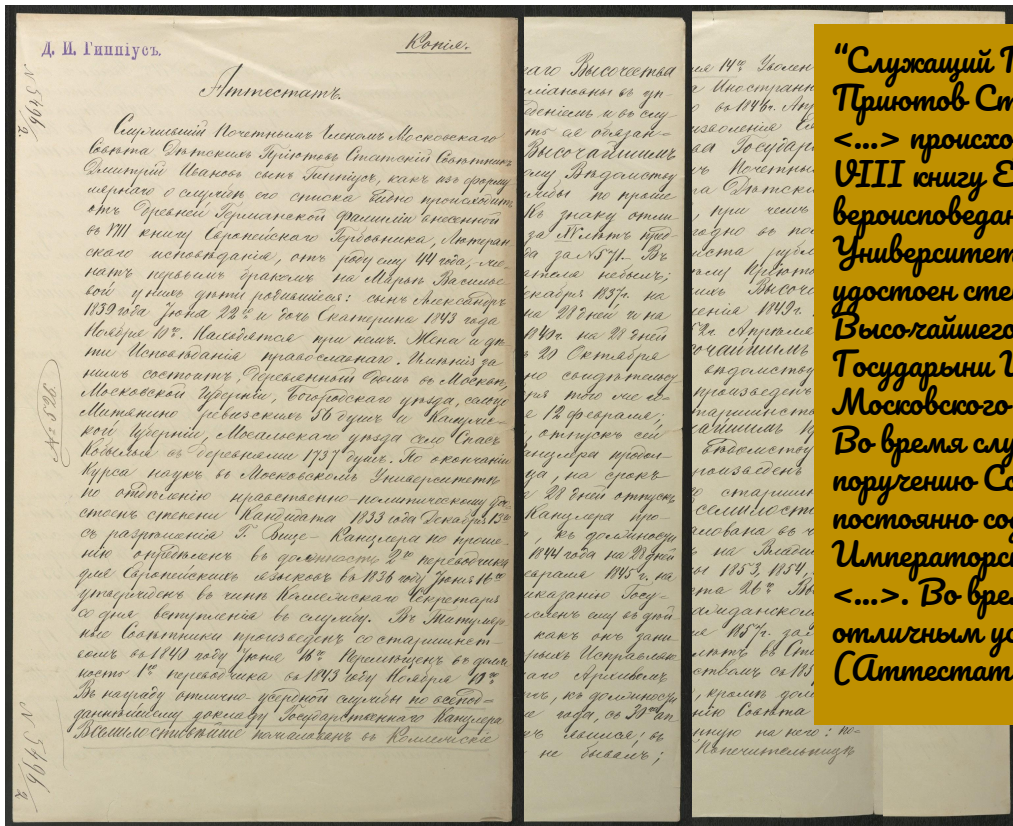 Д. И. Гиппіусъ.
Копія.
Аттестатъ.
Служившій Почетнымъ Членомъ Московскаго
Совѣта Дѣтскихъ Пріютовъ Статскій Совѣтникъ
Дмитрій Ивановъ сынъ Гиппіусъ, какъ изъ форму
лярнаго о службѣ его списка видно происходитъ
отъ древней Германской фамиліи внесенной
въ VIII книгу Европейскаго Гербовника, Лютеран
скаго исповѣданія, отъ роду ему 44 года, же-
натъ первымъ бракомъ на Марьѣ Василье
вой у нихъ дѣти родившіеся: сынъ Александръ
1839 года Іюня 22го и дочь Екатерина 1843 года
Ноября 10го. Находятся при немъ. Жена и дѣ
ти Исповѣданія православнаго. Имѣнія за
нимъ состоитъ, деревянный домъ въ Москвѣ,
Московской Губерніи, Богородскаго уѣзда, сельцо
Митянино ревизскихъ 56 душъ и Калужс-
кой Губерніи, Мосальскаго уѣзда село Спасъ
съ деревнями 1737 душъ. По окончаніи
Курса наукъ въ Московскомъ Университетѣ
по отдѣленію нравственно-политическому удо
стоенъ степени Кандидата 1833 года Декабря
съ разрѣшенія Г. Вице-Канцлера по проше-
нію опредѣленъ въ должность 2го переводчика
для Европейскихъ языковъ въ 1836 году Іюня 16го
утвержденъ въ чинѣ Коллежскаго Секретаря
со дня вступленія въ службу. Въ Титуляр
ные Совѣтники произведенъ со старшинст
вомъ въ 1840 году Іюня 16го Перемѣщенъ въ долж
ность 1го переводчика въ 1843 году Ноября
Въ награду отлично усердной службы по всепод
даннѣйшему докладу Государственнаго Канцлера
Всемилостивѣйше пожалованъ въ Коллежскіе
№ 526.
наго Высочества
Высочайшимъ
ому Вѣдомству
жбы по проше
Къ знаку отли
за XV лѣтъ
да за № 571. Въ
небылъ;
екабря 1837г. на
на 28 дней и на
1840г. на 28 дней
ъ 20 Октября
но свидѣтельсу
е 12 февраля;
, отпускъ сей
анцлера продол
да, на срокъ
а 28 дней отпускъ
Канцлера про-
, къ должности
1844 года на 28 дней
евраля 1845 г. на
иказанію Госу-
какъ онъ зани
наго Архивомъ
ъ, къ должности
е года, съ 30го ап
ъ явился; въ
не бывалъ;
ля 14го Уволен
а Иностранн
въ 1846г. Апр
изволенія
ва Государ
ъ Почетны
а Дѣтски
, при чемъ
одно въ по
иста рубл
ому Пріюто
ихъ Высоч
ленія 1849г.
52г. Апрѣля
очайшимъ
вѣдомству
произведенъ
таршинств
айшимъ
вѣдомству
роизведенъ
о старшин
семилост
алована въ
ъ на Влади
ы 1853, 1854,
ста 26го
ажданском
ля 1857г. за
лѣтъ въ
ствомъ въ 185
, кромѣ долж
нію Совѣта
нную на него: по-
Попечительницѣ
“Служащий
Приютов Ст
<...> происхо
VIII книгу Е
вероисповедан
Университет
удостоен сте
Высочайшего
Государыни
Московского
Во время слу
поручению Со
постоянно со
Императорс
<...>. Во вре
отличным ус
(Аттестат